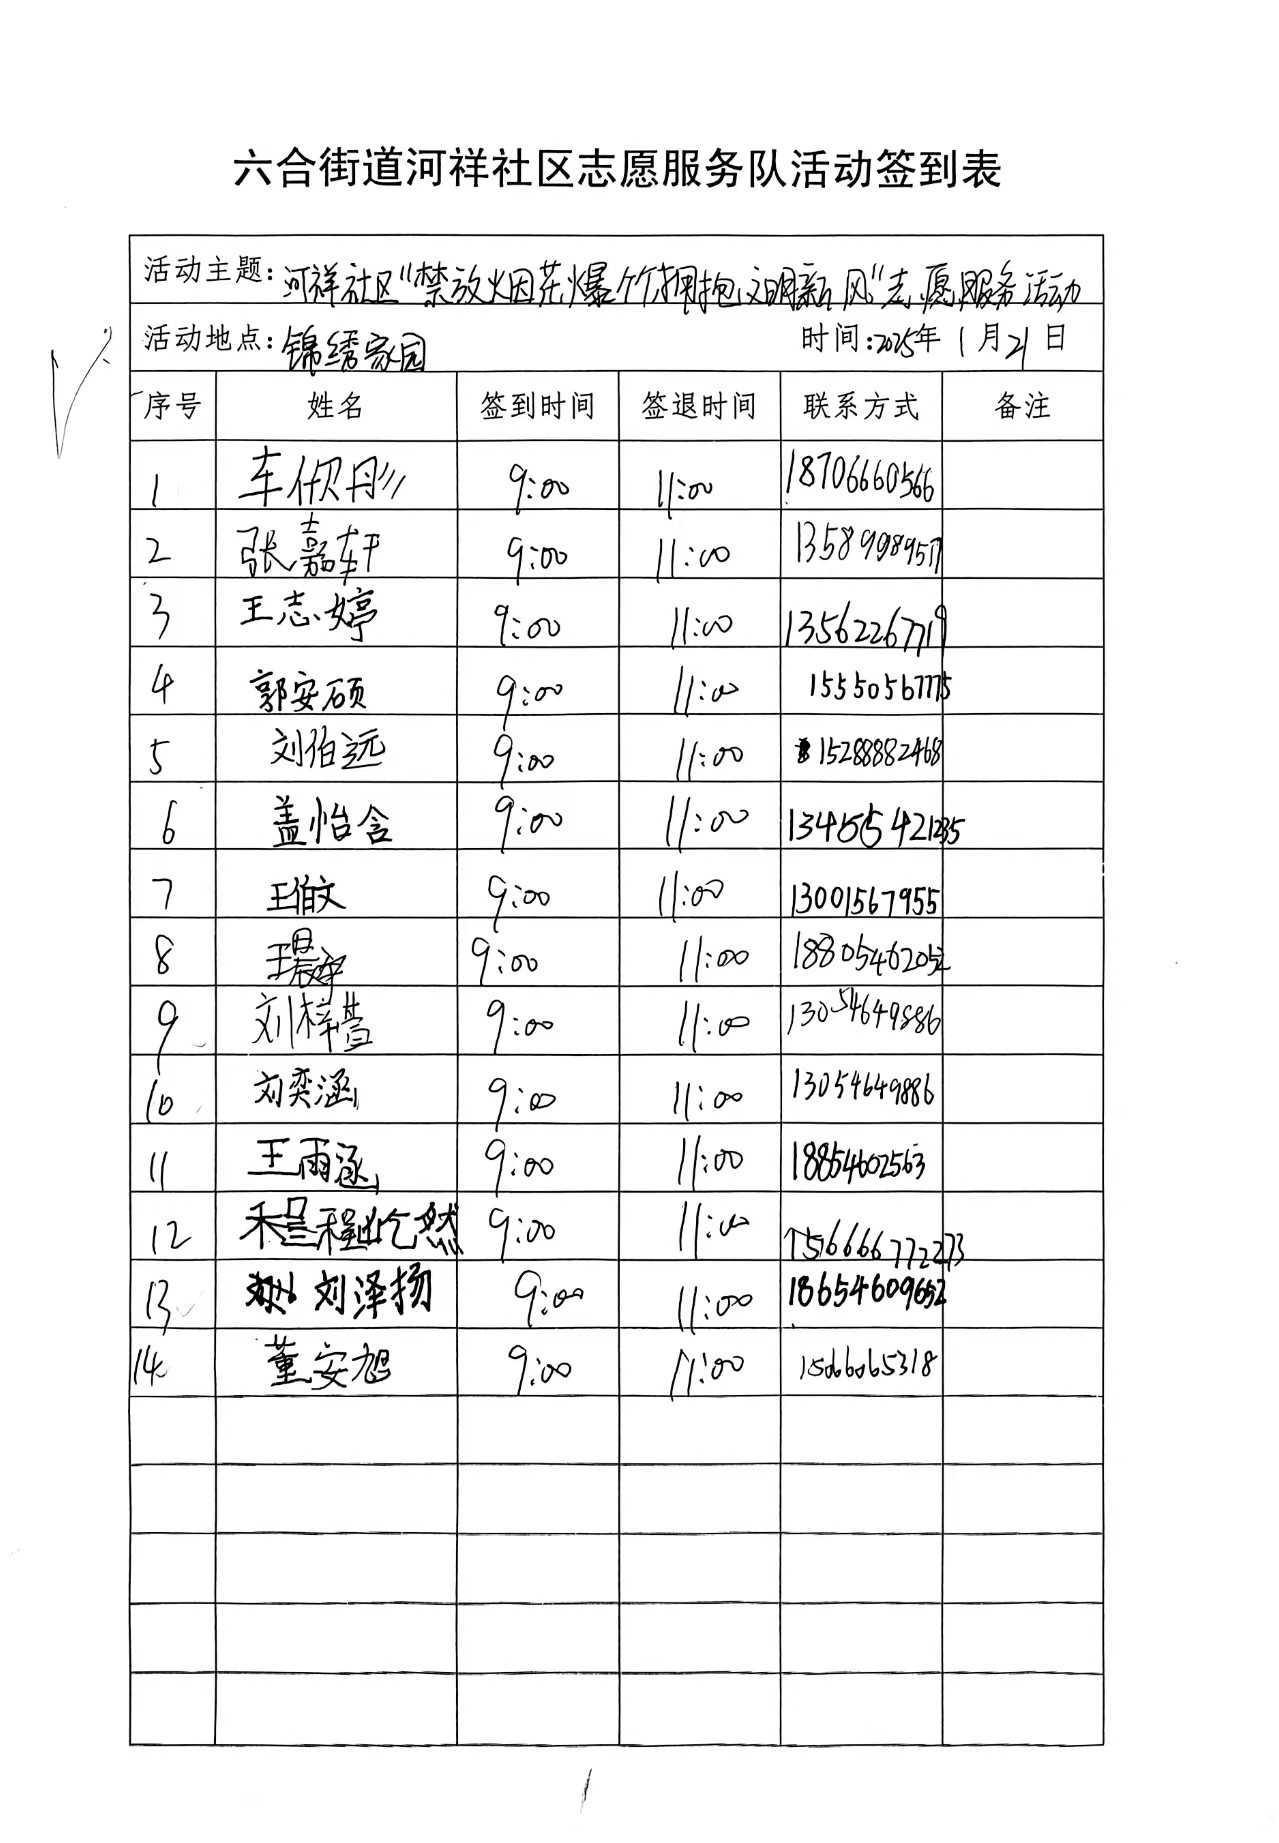 六合街道河祥社区志愿服务队活动签到表
活动主题:河祥社区“禁放烟花爆竹拥抱文明新风”志愿服务活动
活动地点:锦绣家园 时间:2025年1月21日
序号 姓名 签到时间 签退时间 联系方式 备注
1 车佴彤 9:00 11:00 18706660566
2 张嘉轩 9:00 11:00 13589989517
3 王志婷 9:00 11:00 13562267719
4 郭安硕 9:00 11:00 15550567775
5 刘伯远 9:00 11:00 15288882468
6 盖怡含 9:00 11:00 13455421235
7 王伯文 9:00 11:00 13001567955
8 9:00 11:00 18805462052
9 刘梓萱 9:00 11:00 13054649886
10 刘奕涵 9:00 11:00 13054649886
11 王雨涵 9:00 11:00 18854602563
12 程屹然 9:00 11:00
13 刘泽扬 9:00 11:00 18654609652
14 董安旭 9:00 11:00 15066065318